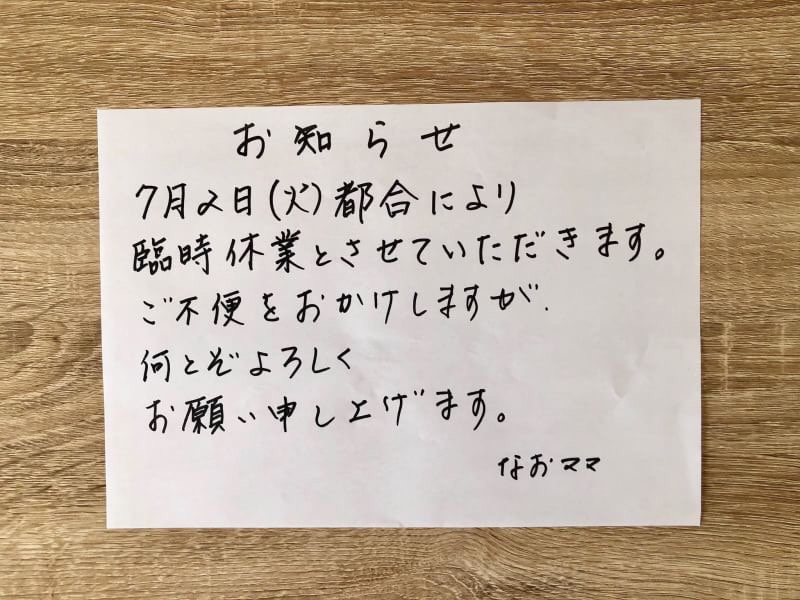 お知らせ
7月2日(火)都合により
臨時休業とさせていただきます。
ご不便をおかけしますが、
何とぞよろしく
お願い申し上げます。
なおママ